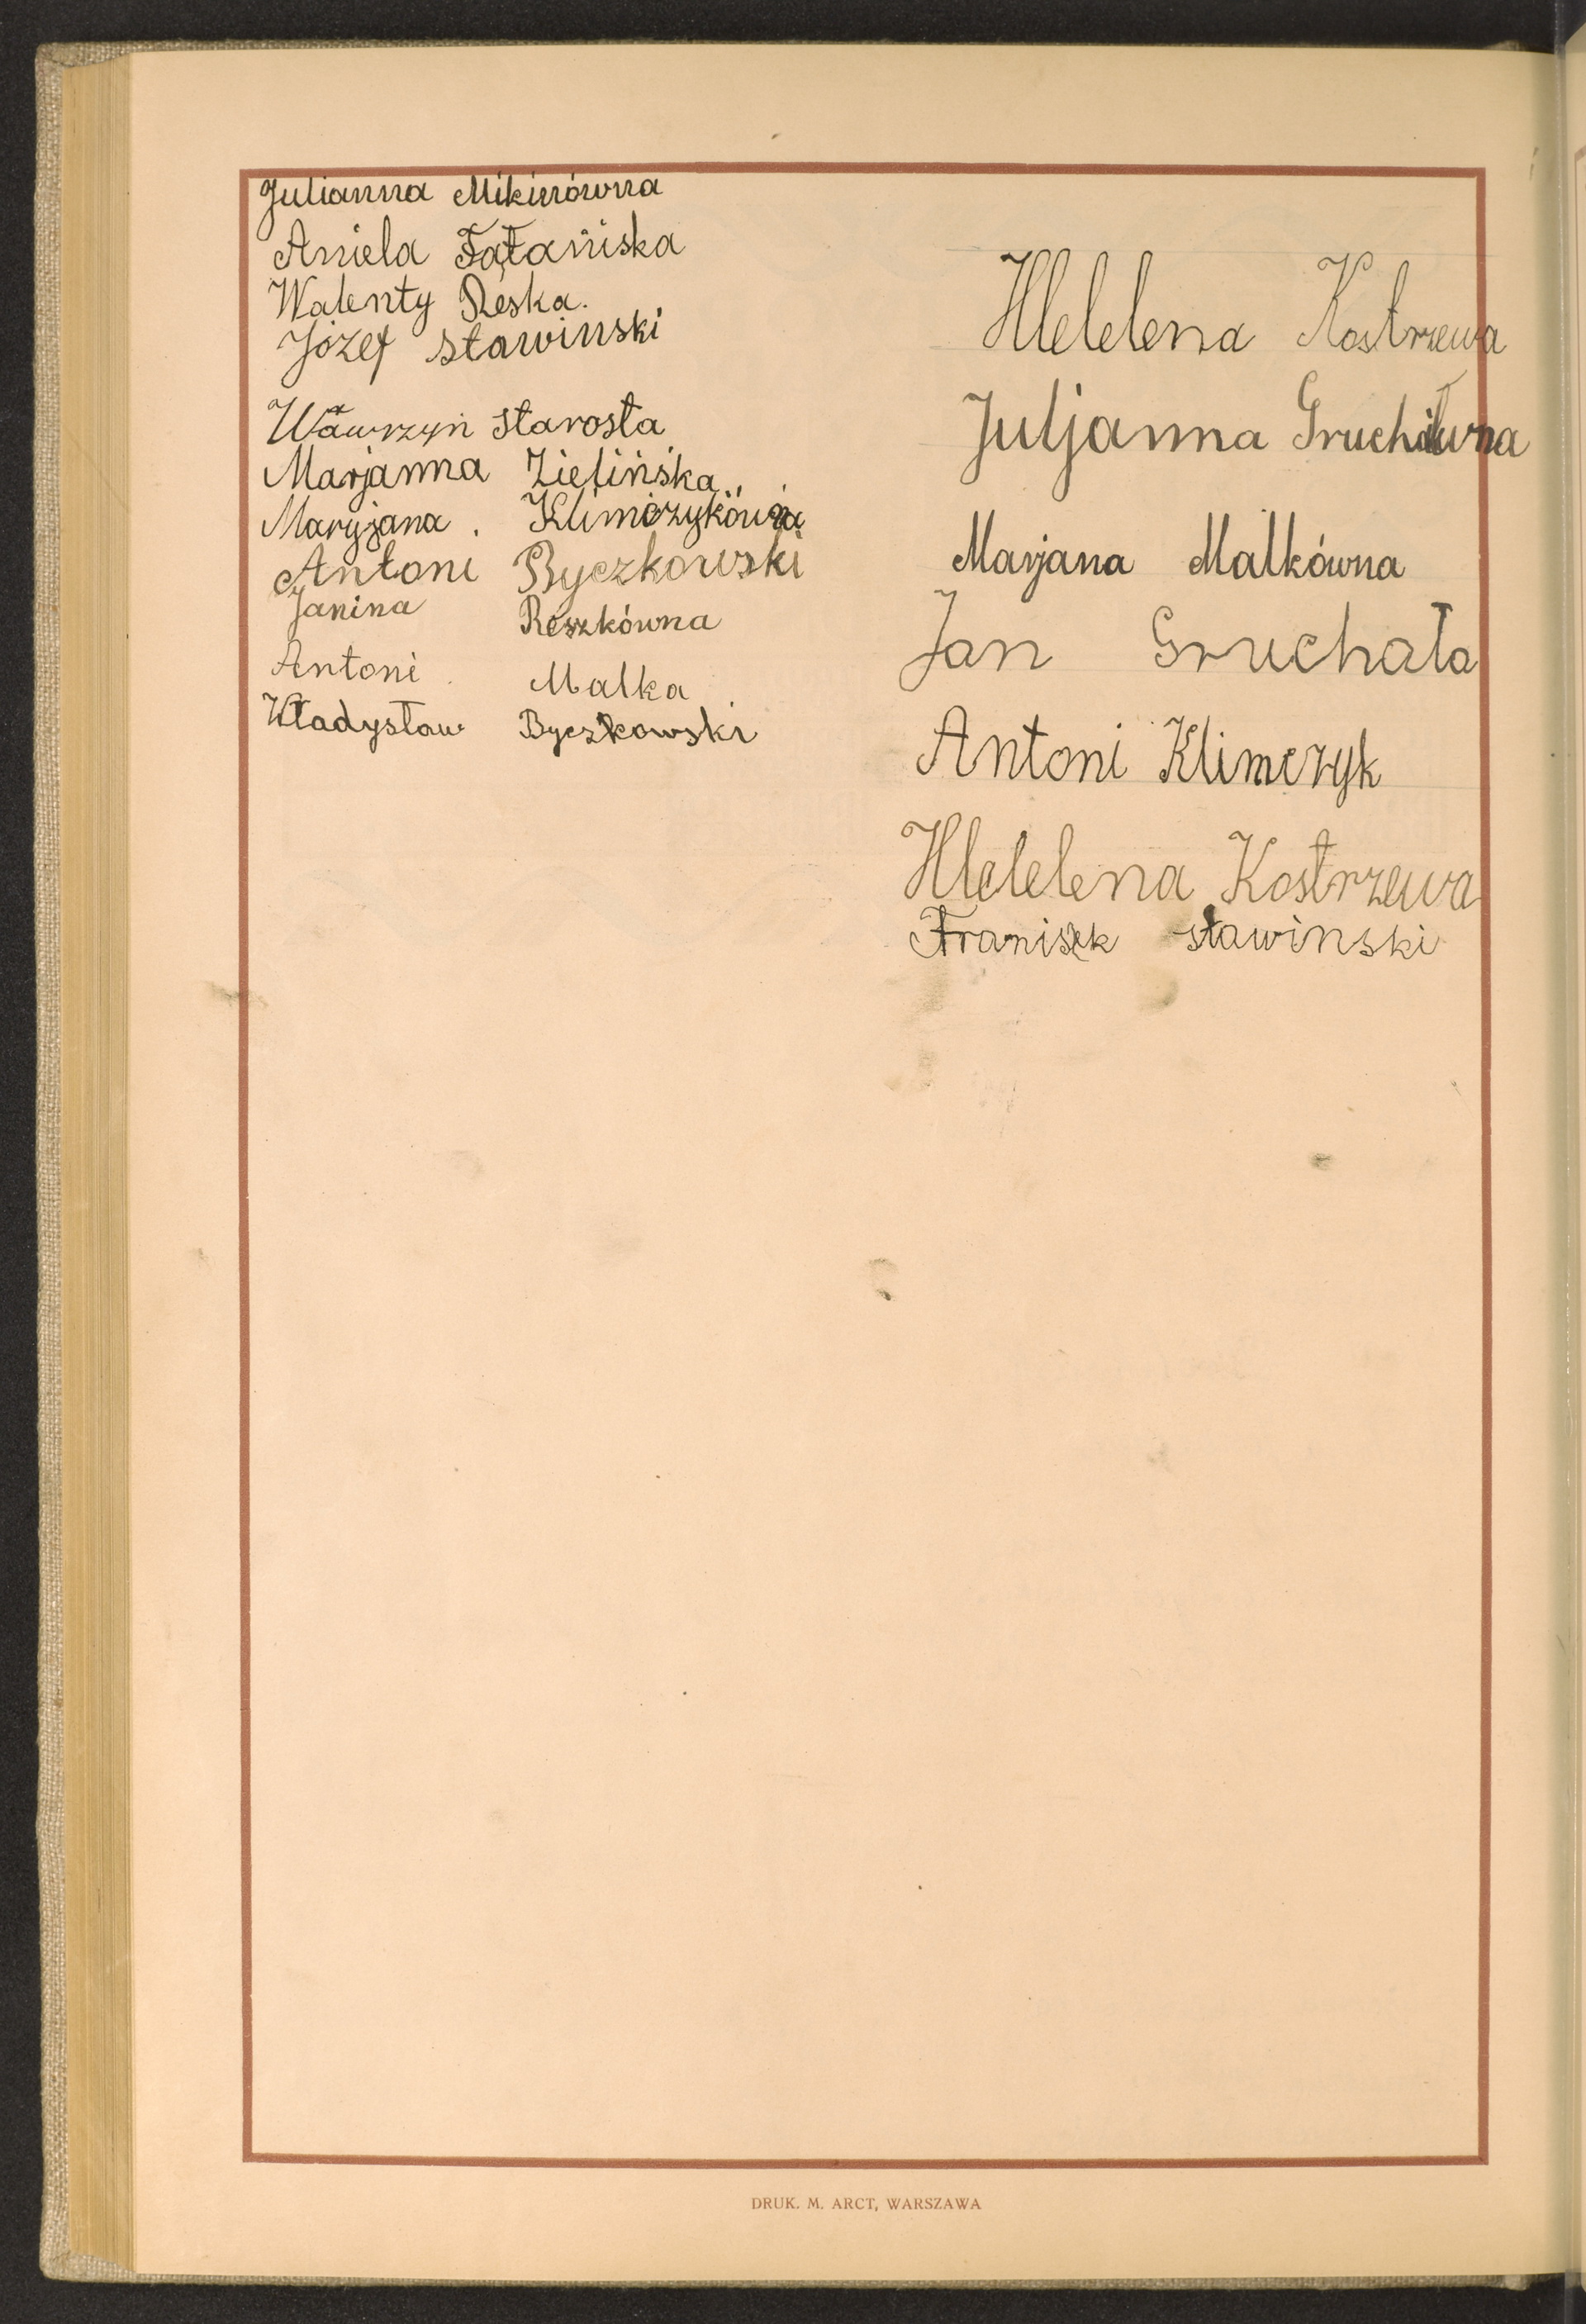 Julianna Mikinówna
Aniela Fątańiska
Walenty Reska.
Józef Sławinski
Wawrzyn Starosta
Marjanna Zielińska
Maryjana . Klimczykówna
Antoni Byczkowski
Janina Reszkówna
Antoni Malka
Władysław Byczkowski
Hlelelena Kostrzewa
Juljanna
Marjana Malkówna
Jan Gruchała
Antoni Klimczyk
Hlelelena Kostrzewa
Franisek sławinski
DRUK. M. ARCT, WARSZAWA